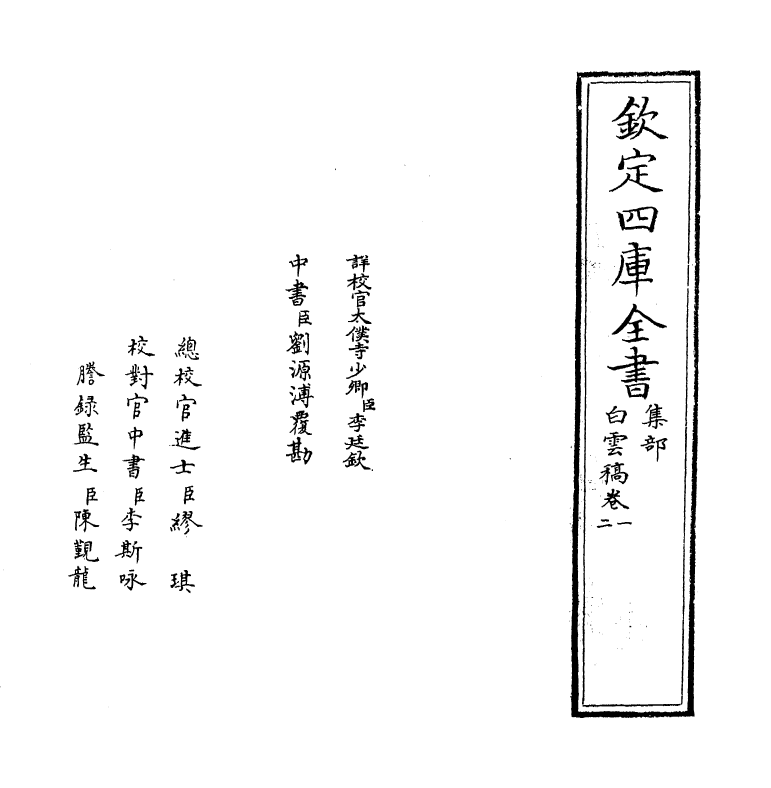 欽定四庫全書
集部
白雲稿卷一二
詳校官太僕寺少卿臣李廷欽
中書臣劉源溥覆勘
總校官進士臣繆琪
校對官中書臣李斯咏
謄錄監生臣陳覲龍